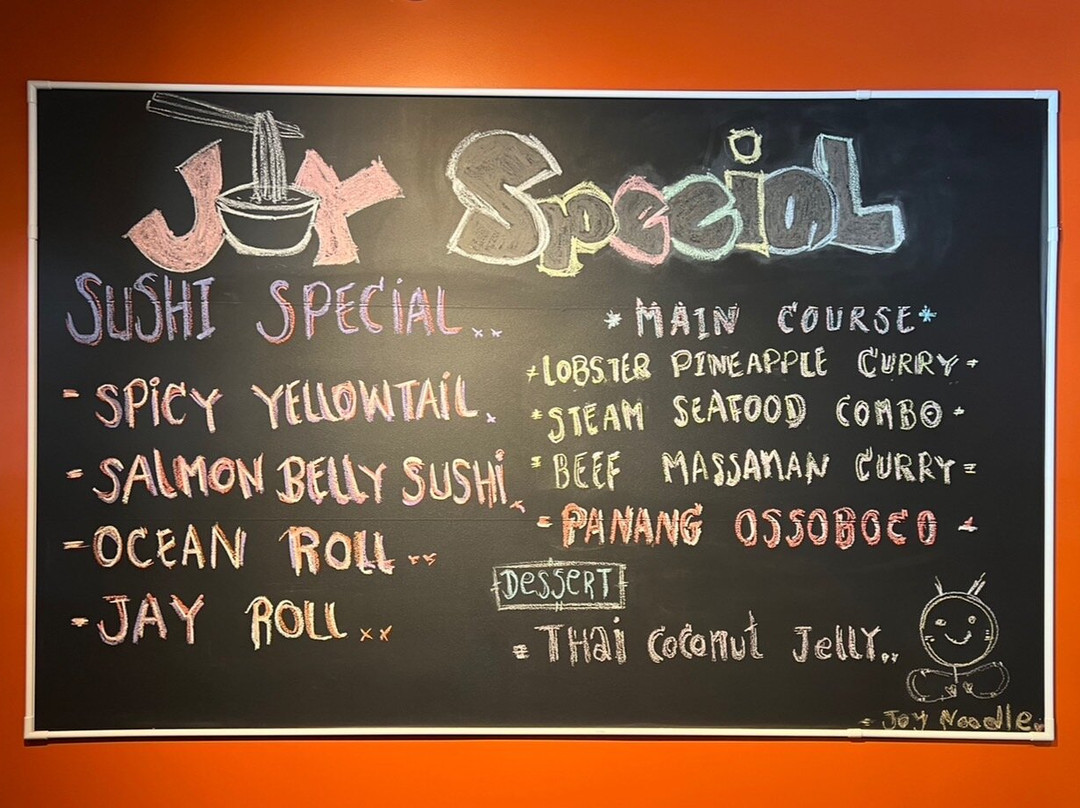 JOY Special
SUSHI SPECIAL..
- SPICY YELLOWTAIL.
- SALMON BELLY SUSHI.
- OCEAN ROLL..
- JAY ROLL..
* MAIN COURSE *
LOBSTER PINEAPPLE CURRY
STEAM SEAFOOD COMBO
BEEF MASSAMAN CURRY
- PANANG OSSOBOCO -
DESSERT
THAi COCONUT JELLY..
- Joy Noodle.